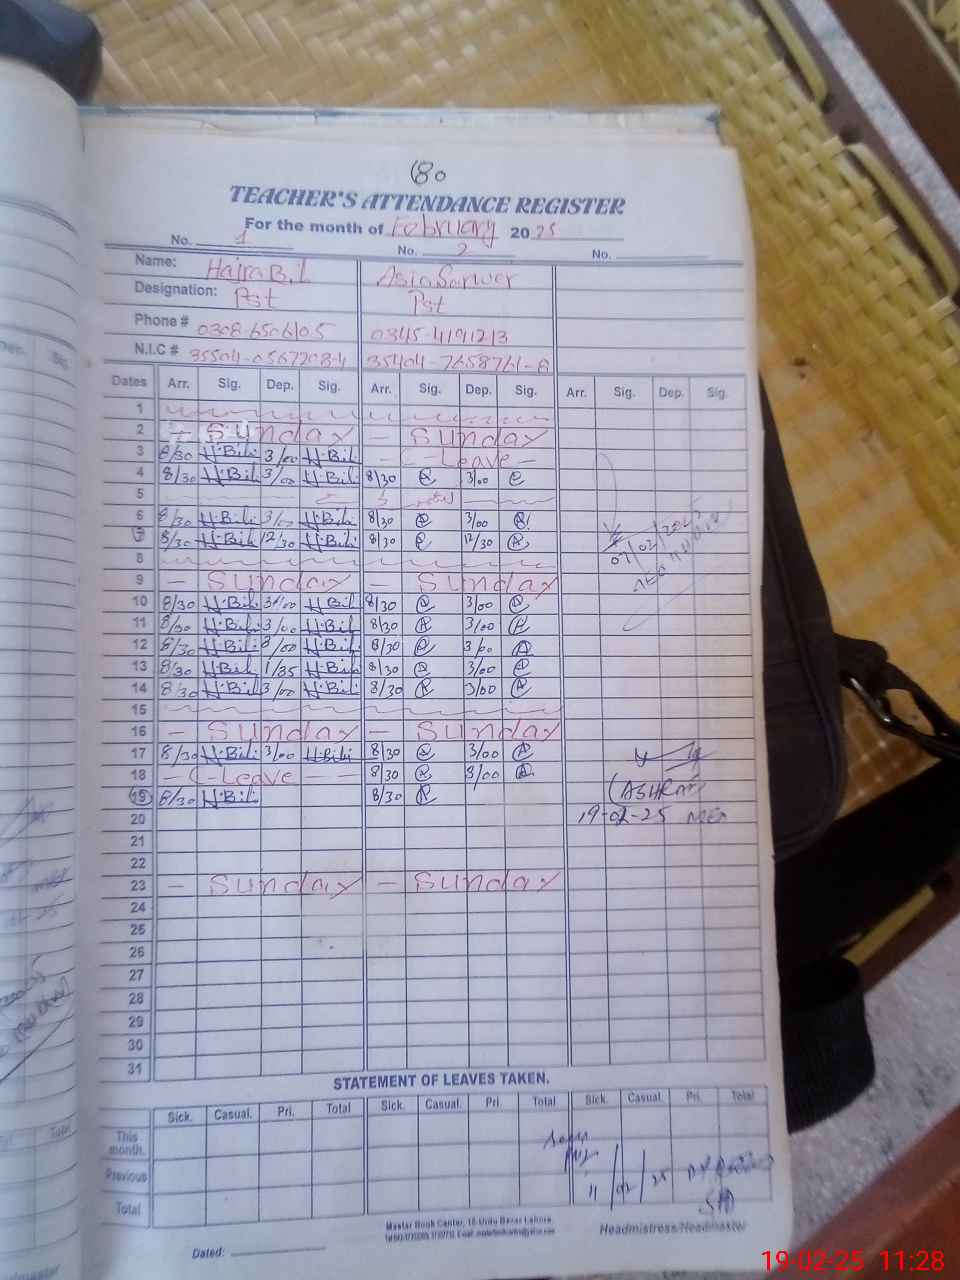 (80
TEACHER'S ATTENDANCE REGISTER
For the month of February 2025
No. 1 No. 2 No.
Name: Hajra B.L Asia Sarwer
Designation: Pst Pst
Phone # 0308-6506105 0345-4191213
N.I.C # 35504-0567208-4 35404-7658761-8
Dates Arr. Sig. Dep. Sig. Arr. Sig. Dep. Sig. Arr. Sig. Dep. Sig.
1
2 - Sunday - Sunday
3 8/30 H.Bibi 3/00 H.Bibi - C-Leave -
4 8/30 H.Bibi 3/00 H.Bibi 8/30 3/00
5
6 8/30 H.Bibi 3/00 H.Bibi 8/30 3/00
7 8/30 H.Bibi 12/30 H.Bibi 8/30 12/30 07/02/2025
8
9 - Sunday - Sunday
10 8/30 H.Bibi 3/00 H.Bibi 8/30 3/00
11 8/30 H.Bibi 3/00 H.Bibi 8/30 3/00
12 8/30 H.Bibi 3/00 H.Bibi 8/30 3/00
13 8/30 H.Bibi 1/35 H.Bibi 8/30 3/00
14 8/30 H.Bibi 3/00 H.Bibi 8/30 3/00
15
16 - Sunday - Sunday
17 8/30 H.Bibi 3/00 H.Bibi 8/30 3/00
18 - C-Leave - 8/30 3/00
19 8/30 H.Bibi 8/30 (ASHRAF)
20 19-02-25
21
22
23 - Sunday - Sunday
24
25
26
27
28
29
30
31
STATEMENT OF LEAVES TAKEN.
Sick. Casual. Pri. Total Sick. Casual. Pri. Total Sick. Casual. Pri. Total
This month.
Previous 11/02/25
Total
Master Book Center, 16-Urdu Bazar Lahore.
Headmistress/Headmaster
Dated:
19-02-25 11:28